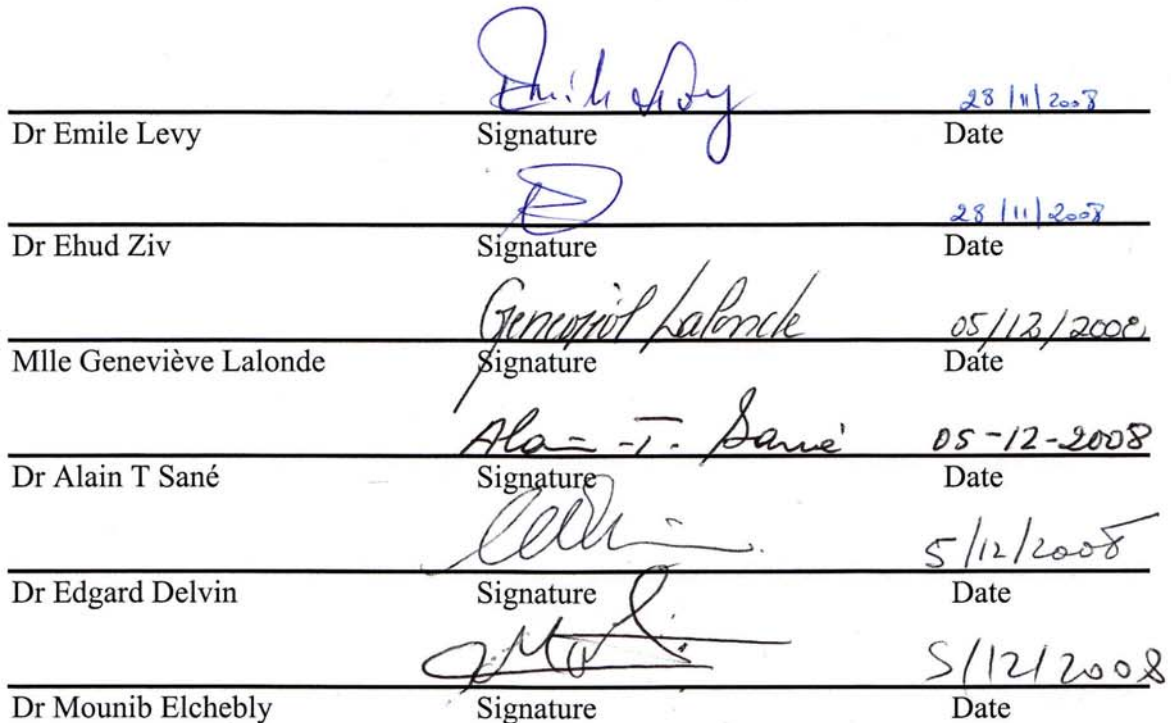 28/11/2008
Dr Emile Levy Signature Date
28/11/2008
Dr Ehud Ziv Signature Date
Lalonde 05/12/2008
Mlle Geneviève Lalonde Signature Date
Alain-T. Sané 05-12-2008
Dr Alain T Sané Signature Date
5/12/2008
Dr Edgard Delvin Signature Date
5/12/2008
Dr Mounib Elchebly Signature Date